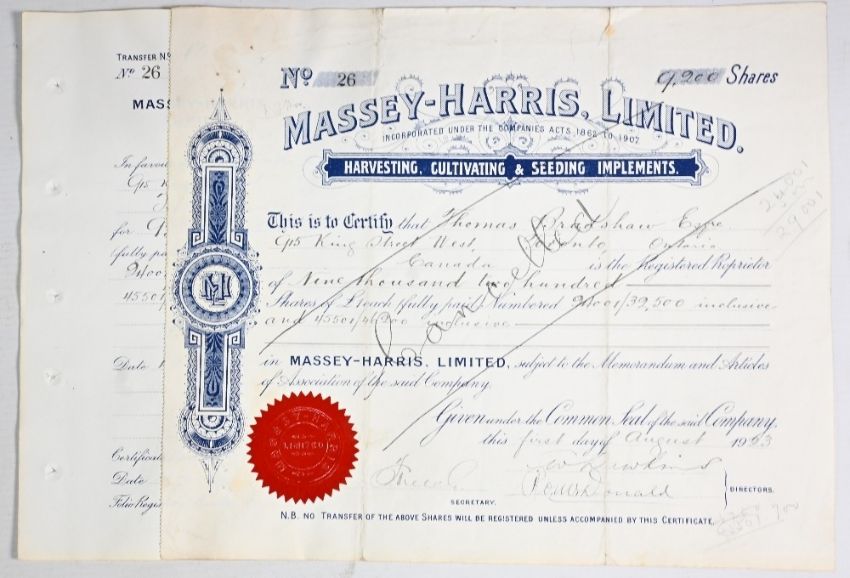 TRANSFER No
No 26
MASS
In favou
for
fully pa
45501/
Date
Certifica
Date
Folio Regis
No 26
9,200 Shares
MASSEY-HARRIS, LIMITED.
INCORPORATED UNDER THE COMPANIES ACTS, 1862 TO 1907
HARVESTING, CULTIVATING & SEEDING IMPLEMENTS.
This is to Certify that Thomas Bradshaw Esqre.
915 King Street West, Toronto, Ontario
Canada is the Registered Proprietor
of Nine thousand two hundred
Shares of £1 each (fully paid) Numbered /32,500 inclusive
and 45501/ inclusive
Cancelled
in MASSEY-HARRIS, LIMITED, subject to the Memorandum and Articles
of Association of the said Company.
Given under the Common Seal of the said Company,
this first day of August 1923
MH
MASSEY-HARRIS
LIMITED
SECRETARY.
DIRECTORS.
N.B. NO TRANSFER OF THE ABOVE SHARES WILL BE REGISTERED UNLESS ACCOMPANIED BY THIS CERTIFICATE.
29001
700